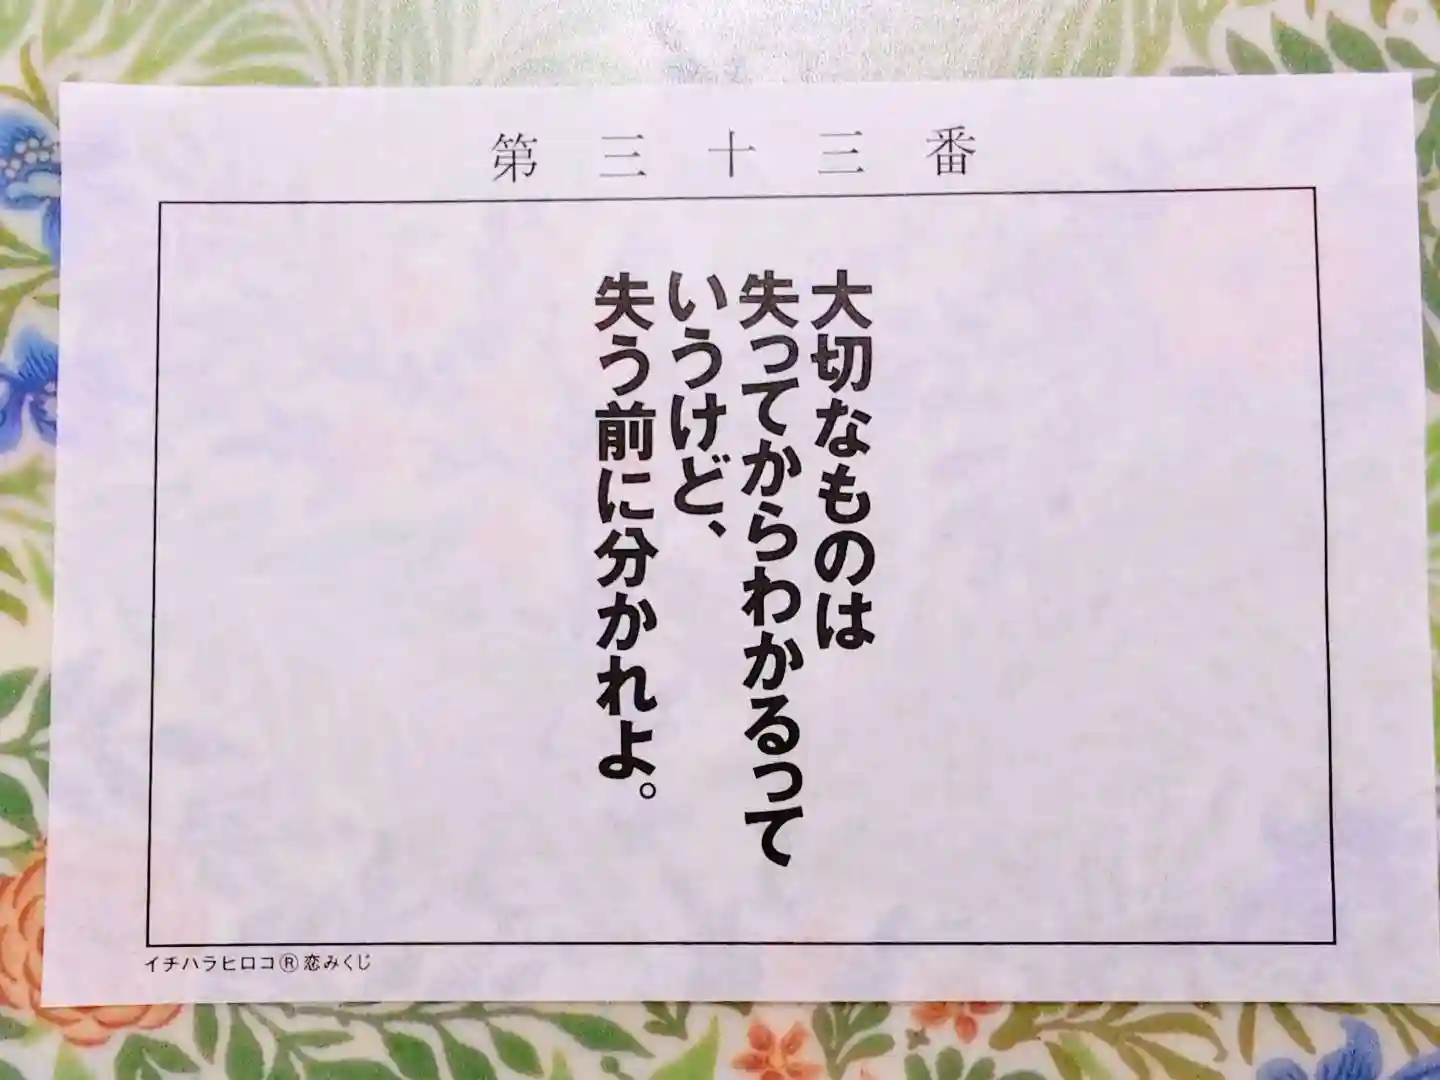 第三十三番
大切なものは
失ってからわかるって
いうけど、
失う前に分かれよ。
イチハラヒロコ®恋みくじ